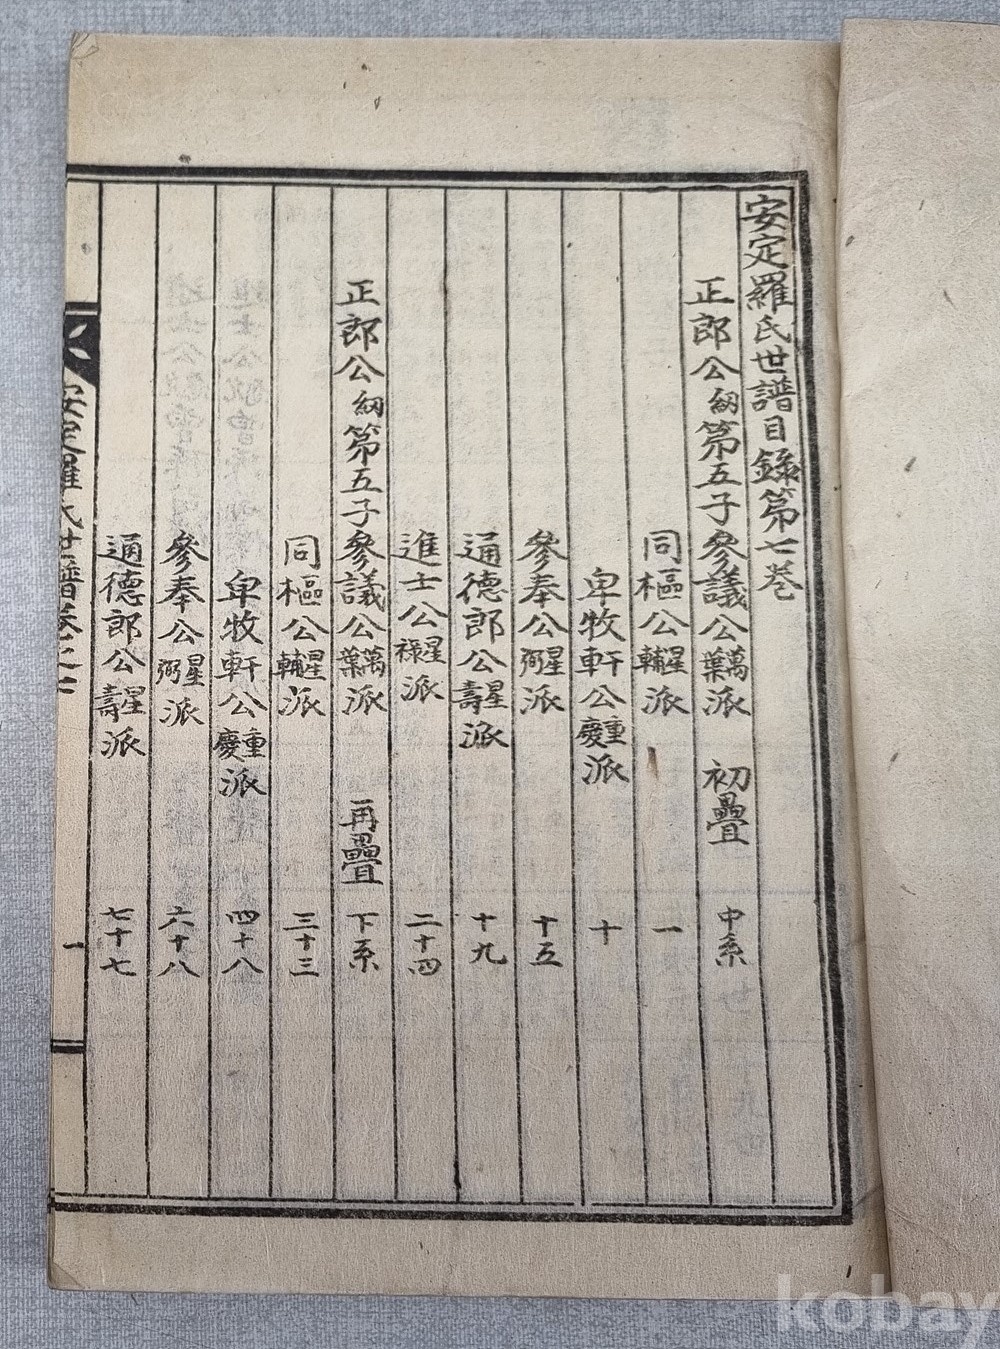 安定羅氏世譜目錄第七卷
正郎公紉第五子參議公萬葉派 初疊 中系
同樞公星輔派 一
卑牧軒公重慶派 十
參奉公星弼派 十五
通德郎公星壽派 十九
進士公星祿派 二十四
正郎公紉第五子參議公萬葉派 再疊 下系
同樞公星輔派 三十三
卑牧軒公重慶派 四十八
參奉公星弼派 六十八
通德郎公星壽派 七十七
安定羅氏世譜卷之七 一
kobay